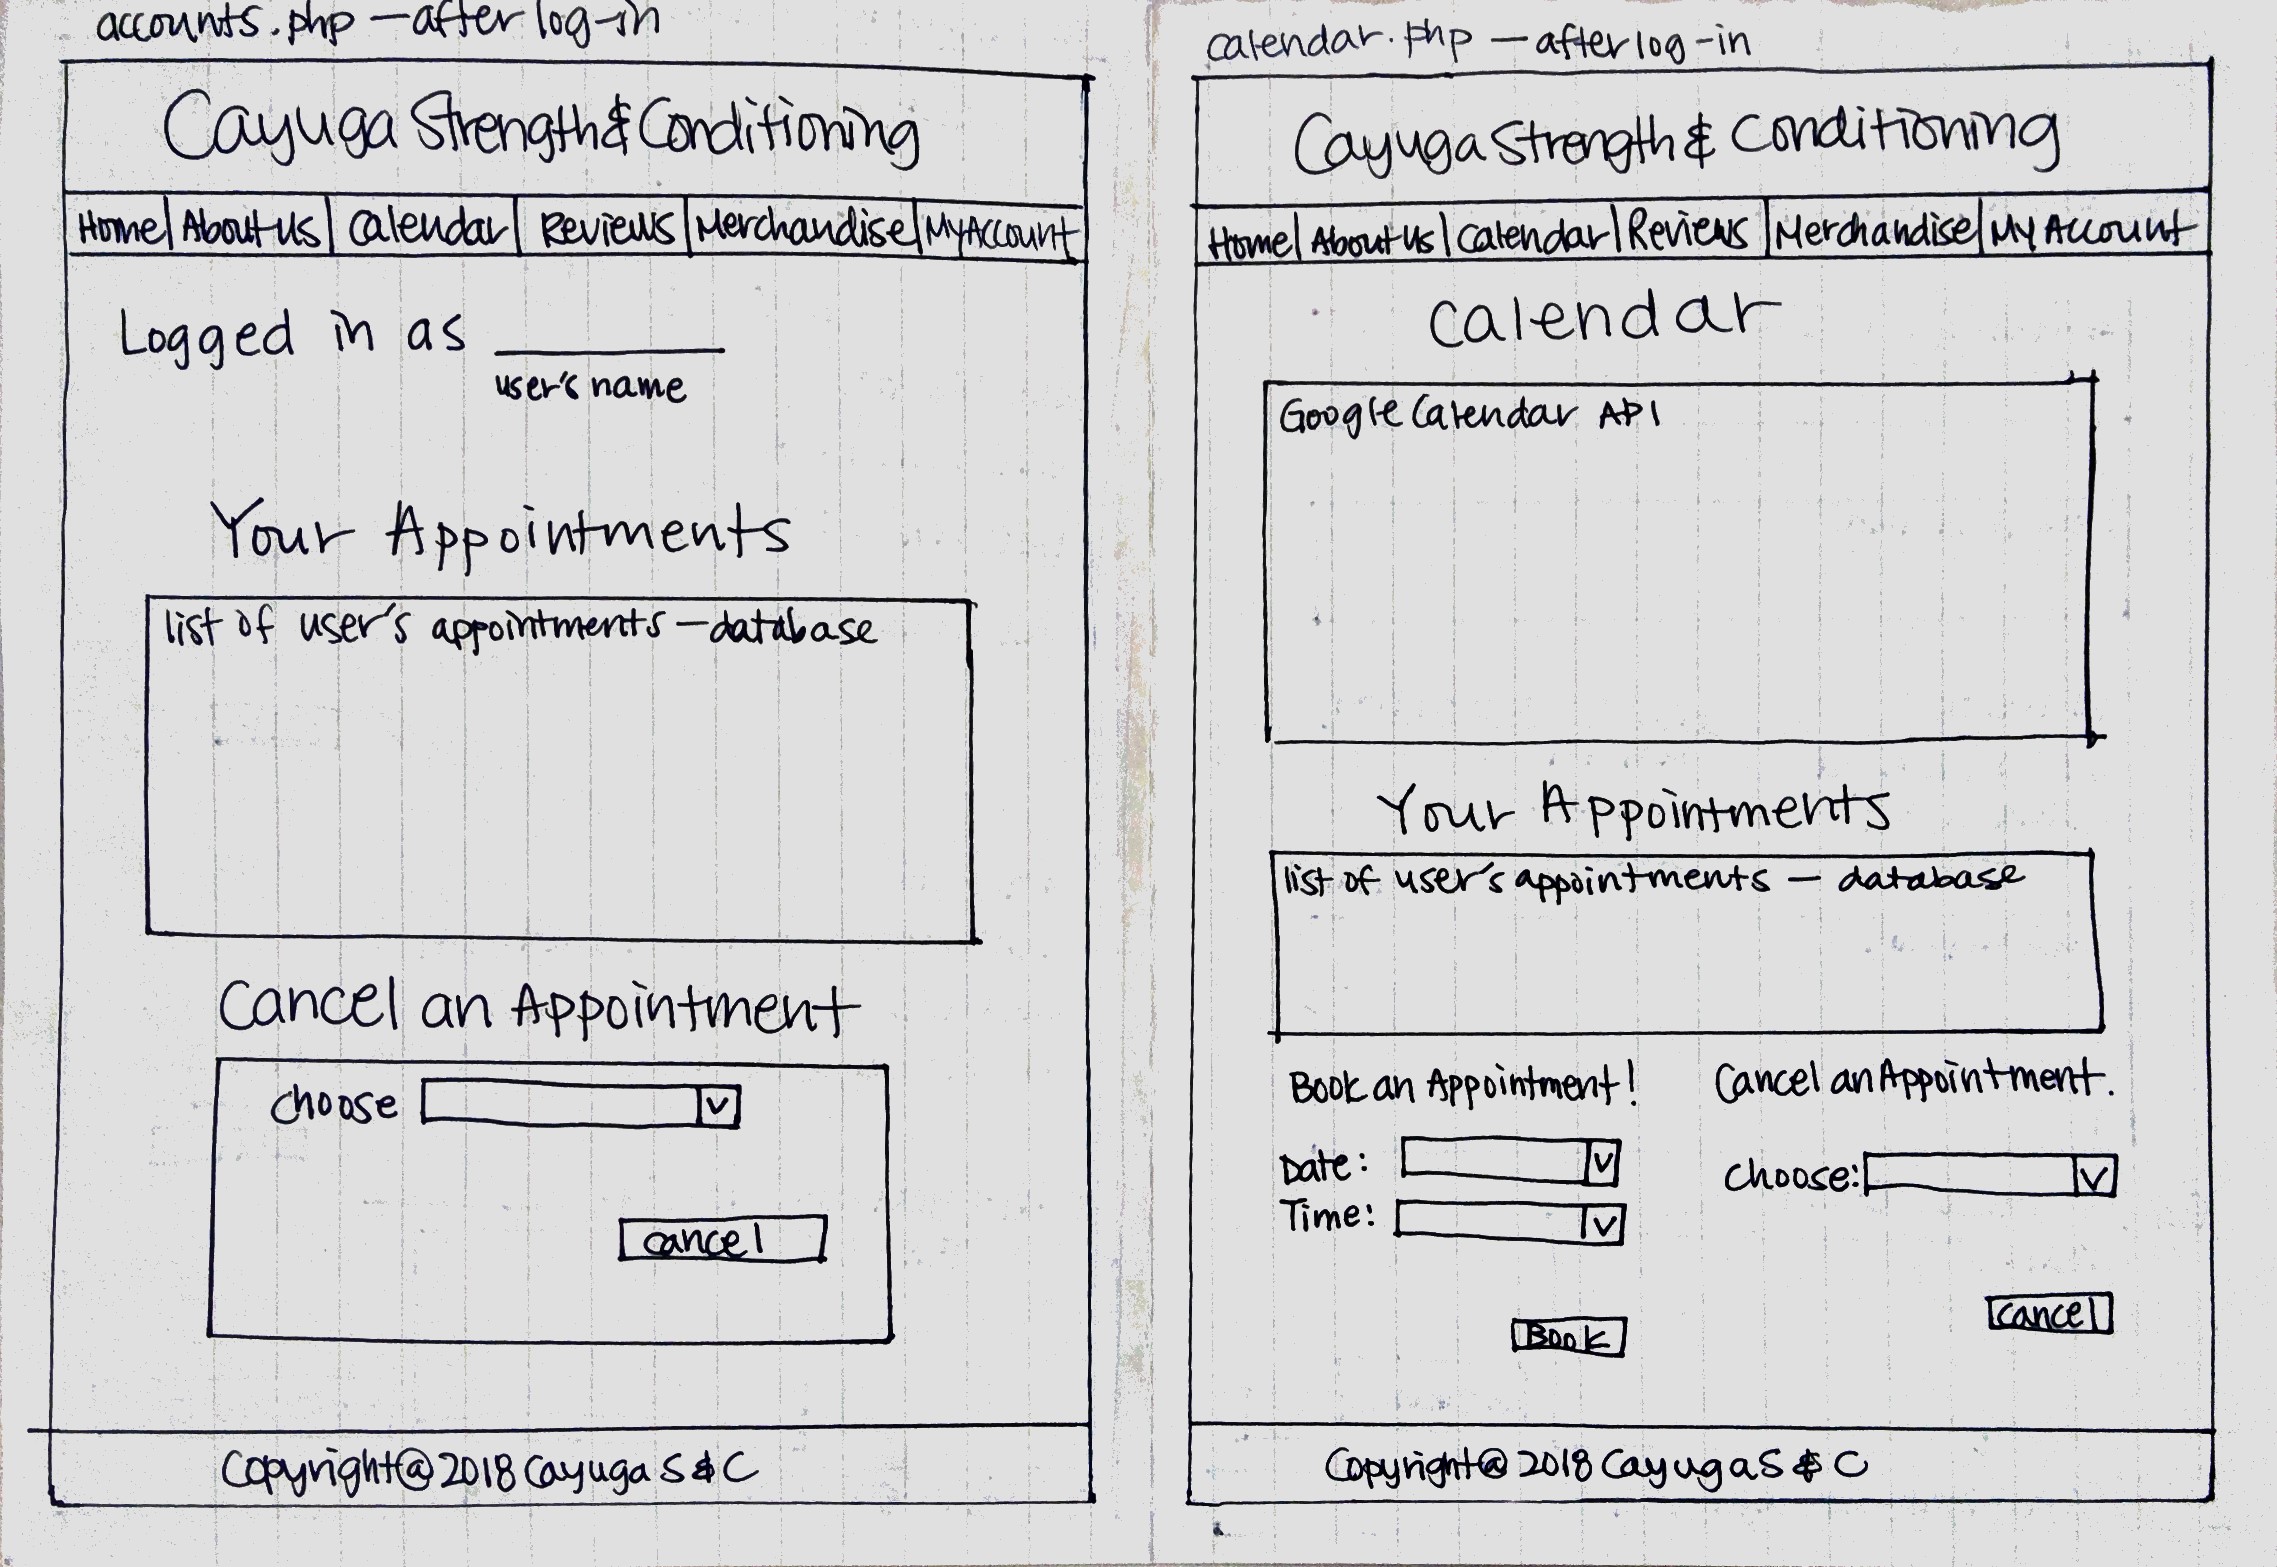 accounts.php — after log-in
Cayuga Strength & Conditioning
Home | About Us | Calendar | Reviews | Merchandise | My Account
Logged in as ________
user's name
Your Appointments
list of user's appointments — database
Cancel an Appointment
choose
v
cancel
Copyright@ 2018 Cayuga S & C
calendar.php — after log-in
Cayuga Strength & Conditioning
Home | About Us | Calendar | Reviews | Merchandise | My Account
Calendar
Google Calendar API
Your Appointments
list of user's appointments — database
Book an Appointment!
Date:
v
Time:
v
Book
Cancel an Appointment.
Choose:
v
cancel
Copyright@ 2018 Cayuga S & C